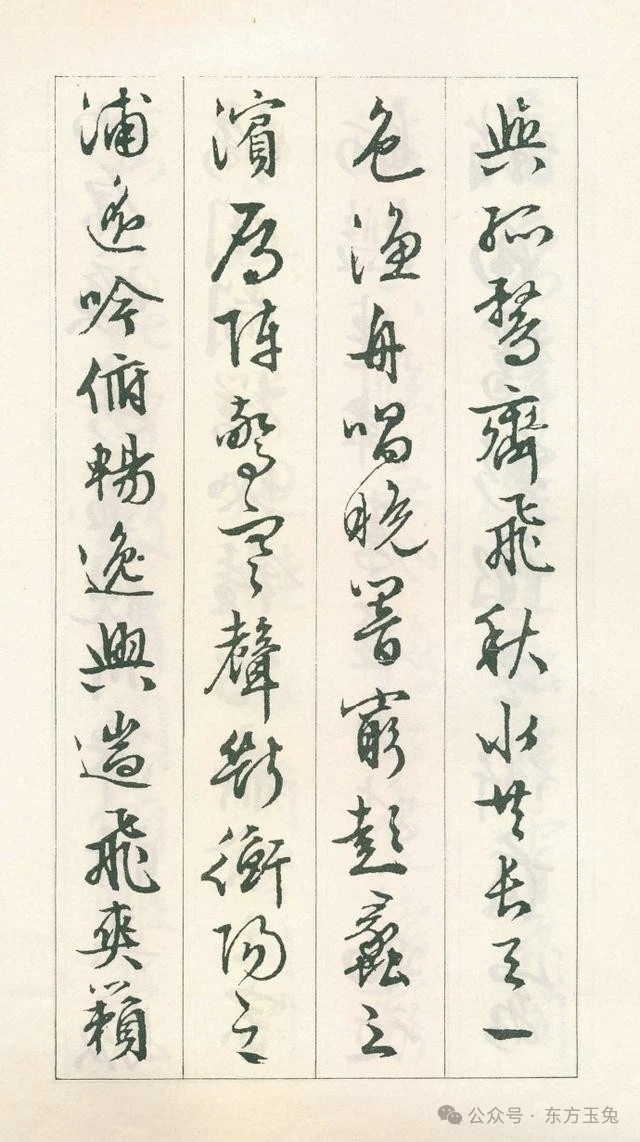 與孤鶩齊飛秋水共长天一
色漁舟唱晚響窮彭蠡之
濱雁陣驚寒聲斷衡陽之
浦遥吟俯暢逸興遄飛爽籟
公众号 · 东方玉兔